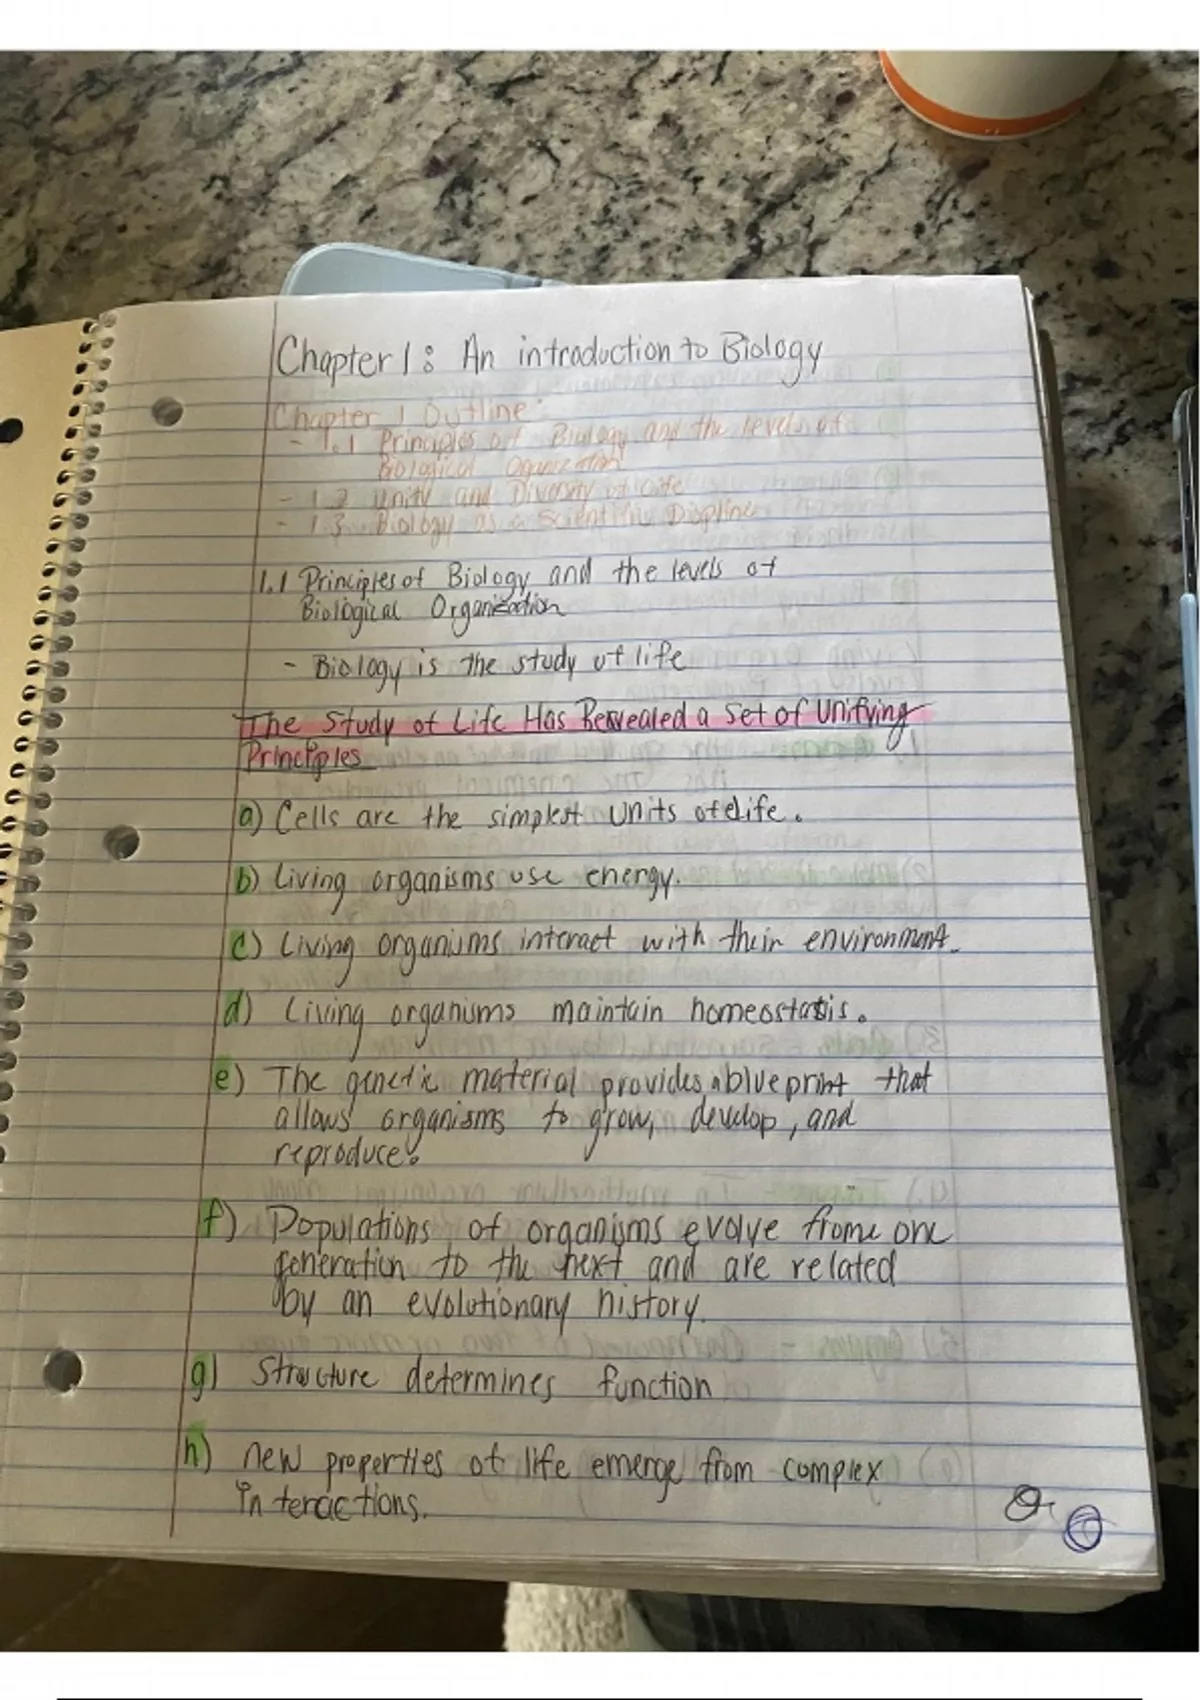 Chapter 1: An introduction to Biology
Chapter 1 Outline:
- 1.1 Principles of Biology and the levels of
Biological Organization
- 1.2 Unity and Diversity of Life
- 1.3 Biology as a Scientific Displine
1.1 Principles of Biology and the levels of
Biological Organization
- Biology is the study of life
The Study of Life Has Revealed a Set of Unifying
Principles
a) Cells are the simplest units of life.
b) Living organisms use energy.
c) Living organisms interact with their environment.
d) Living organisms maintain homeostatis.
e) The genetic material provides a blueprint that
allows organisms to grow, develop, and
reproduce.
f) Populations of organisms evolve frome one
generation to the next and are related
by an evolutionary history.
g) Structure determines function
h) new properties of life emerge from complex
interactions.